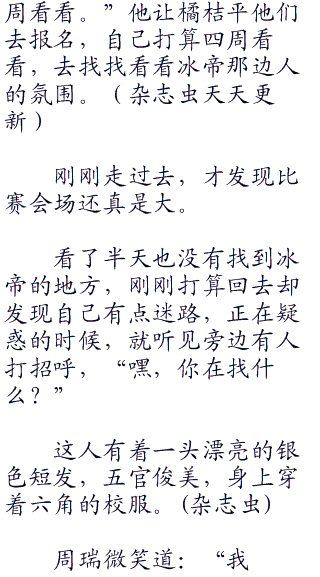 周看看。”他让橘桔平他们
去报名，自己打算四周看
看，去找找看看冰帝那边人
的氛围。（杂志虫天天更
新）
刚刚走过去，才发现比
赛会场还真是大。
看了半天也没有找到冰
帝的地方，刚刚打算回去却
发现自己有点迷路，正在疑
惑的时候，就听见旁边有人
打招呼，“嘿，你在找什
么？”
这人有着一头漂亮的银
色短发，五官俊美，身上穿
着六角的校服。(杂志虫)
周瑞微笑道：“我